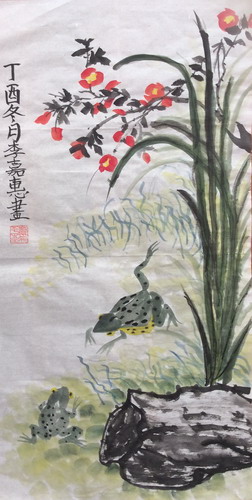 丁酉冬月李嘉惠畫